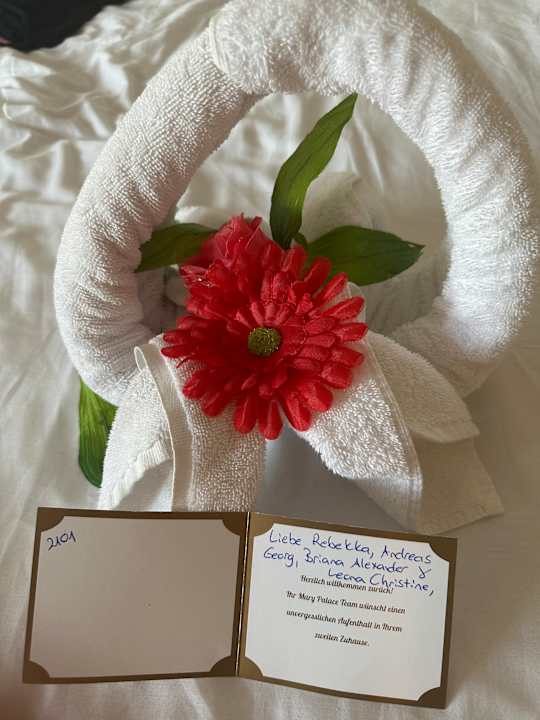 2101
Liebe Rebekka, Andreas
Georg, Briana Alexander &
Leana Christine,
Herzlich willkommen zurück!
Ihr Mary Palace Team wünscht einen
unvergesslichen Aufenthalt in Ihrem
zweiten Zuhause.